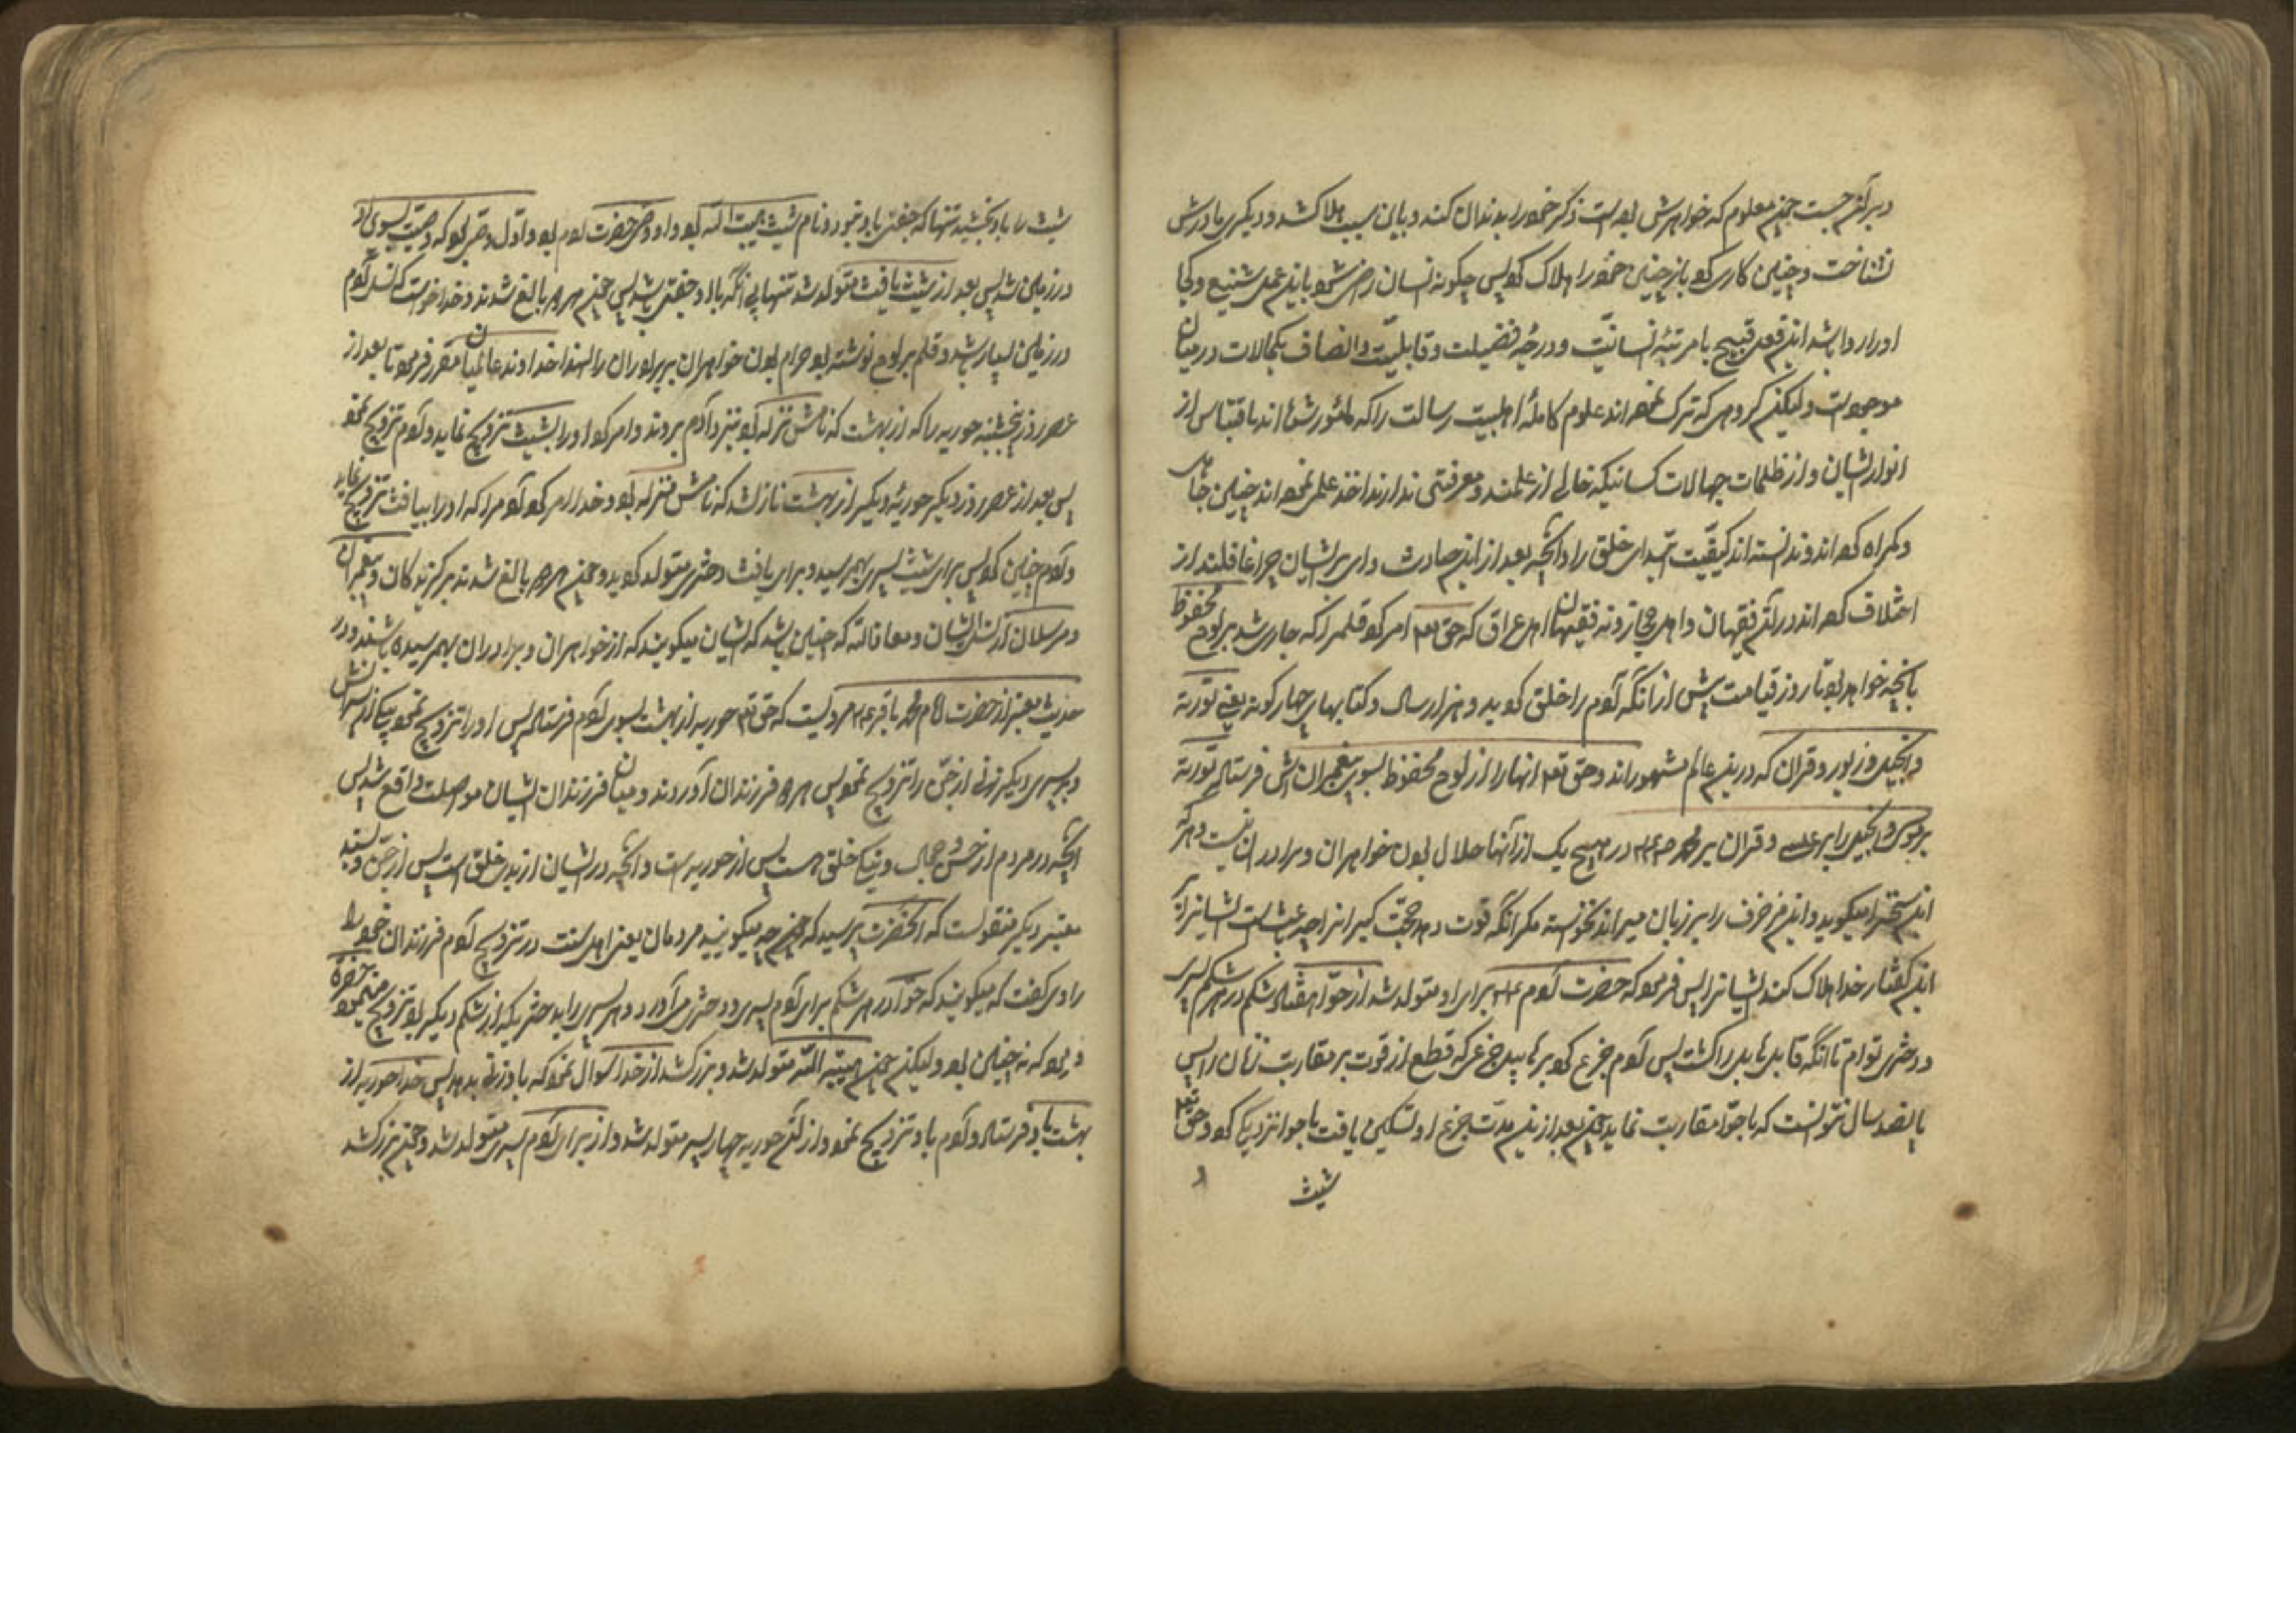 دبر آن جست چون معلوم که خواهرش بوده است ذکر خود را بدندان کند و باین سبب هلاک شد و دیگری مادرش
نشناخت و چنین کاری کرد باز چنین خود را هلاک کرد پس چگونه انسان راضی شود باین عمل شنیع و کجا
او را روا باشد این فعل قبیح با مرتبهٔ انسانیت و درجهٔ فضیلت و قابلیت و انصاف بکمالات در میان
موجودات ولیکن گروهی که ترک نموده اند علوم کاملهٔ اهلبیت رسالت را که مأمور شده اند باقتباس از
انوار ایشان و از ظلمات جهالات کسانیکه خالی از علمند و معرفتی ندارند اخذ علم نموده اند چنین جاهل
و گمراه شده اند و ندانسته اند کیفیت ابتدای خلق را و آنچه بعد از این حادث وای بر ایشان چرا غافلند از
اختلاف نکرده اند در آن فقیهان اهل حجاز و نه فقیهان اهل عراق که حق تع امر کرد قلم را که جاری شد بر لوح محفوظ
بآنچه خواهد بود تا روز قیامت پیش از آنکه آدم را خلق کند بدو هزار سال و کتابهای چهار گونه یعنی تورية
و انجیل و زبور و قران که در این عالم مشهوراند و حق تع انها را از لوح محفوظ بسوی پیغمبران اش فرستاد تورية
بر موسی و انجیل را بر عیسی و قران بر محمد ص در هیچ یک از آنها حلال بودن خواهران و برادران نیست و هر که
این سخن را میگوید و این مزخرف را بر زبان میراند نخواسته مگر آنکه قوت دهد حجت گبران را چه باعث است ایشانرا
این گفتار خدا هلاک کند ایشانرا پس فرمود که حضرت آدم ع برای او متولد شد از حوا هفتاد شکم در هر شکم پسری
و دختری توام تا آنکه قابیل هابیل را کشت پس آدم جزع کرد بر هابیل جزعی که قطع از قوت بر مقاربت زنان را پس
پانصد سال نتوانست که با حوا مقاربت نماید چون بعد از این مدت جزع او تسکین یافت با حوا نزدیکی کرد و حق تع
شیث
شیث را باو بخشید تنها که جفتی با او نبود و نام شیث هبة الله بود و او وصی حضرت آدم بود و اول وصی بود که وصیت بسوی او
در زمین شد پس بعد از شیث یافث متولد شد تنها بی آنکه با او جفتی باشد پس چون هر دو بالغ شدند و خدا خواست که نسل آدم
در زمین بسیار شود و قلم بر لوح نوشته بود حرام بودن خواهران بر برادران را لهذا خداوند عالمیان مقرر فرمود تا بعد از
عصر روز پنجشنبه حوریه را که از بهشت که نامش نزله بود نزد آدم بردند و امر کرد او را بشیث تزویج نماید و آدم تزویج نمود
پس بعد از عصر روز دیگر حوریهٔ دیگر از بهشت نازل شد که نامش منزله بود و خدا امر کرد آدم را که او را بیافث تزویج نماید
و آدم چنین کرد پس برای شیث پسری بهم رسید و برای یافث دختری متولد گردید و چون هر دو بالغ شدند برگزیدگان و پیغمبران
و مرسلان از نسل ایشان و معاذ الله که چنین باشد که ایشان میگویند که از خواهران و برادران بهمرسیده باشند و در
حدیث معتبر از حضرت امام محمد باقر ع مرویست که حق تع حوریه از بهشت بسوی آدم فرستاد پس او را تزویج نمود بیکی از پسرانش
و بپسر دیگر زنی از جن را تزویج نمود پس هر دو فرزندان آوردند و میان فرزندان ایشان مواصلت واقع شد پس
آنچه در مردم از حسن و جمال و نیکی خلق هست پس از حوریه است و آنچه در ایشان از بدی خلق است پس از جن و بسند
معتبر دیگر منقولست که آنحضرت پرسید که چه میگویند مردمان یعنی اهل سنت در تزویج آدم فرزندان خود را
راوی گفت که میگویند که حوا در هر شکم برای آدم پسری و دختری می آورد و هر پسری را بدختریکه از شکم دیگر بود تزویج مینمود حضرة
فرمود که نه چنین بود ولیکن چون هبة الله متولد شد و بزرگ شد از خدا سؤال نمود که باو زنی بدهد پس خدا حوریه از
بهشت باو فرستاد و آدم باو تزویج نمود و از آن حوریه چهار پسر متولد شد و از برای آدم پسری متولد شد و چون بزرگ شد